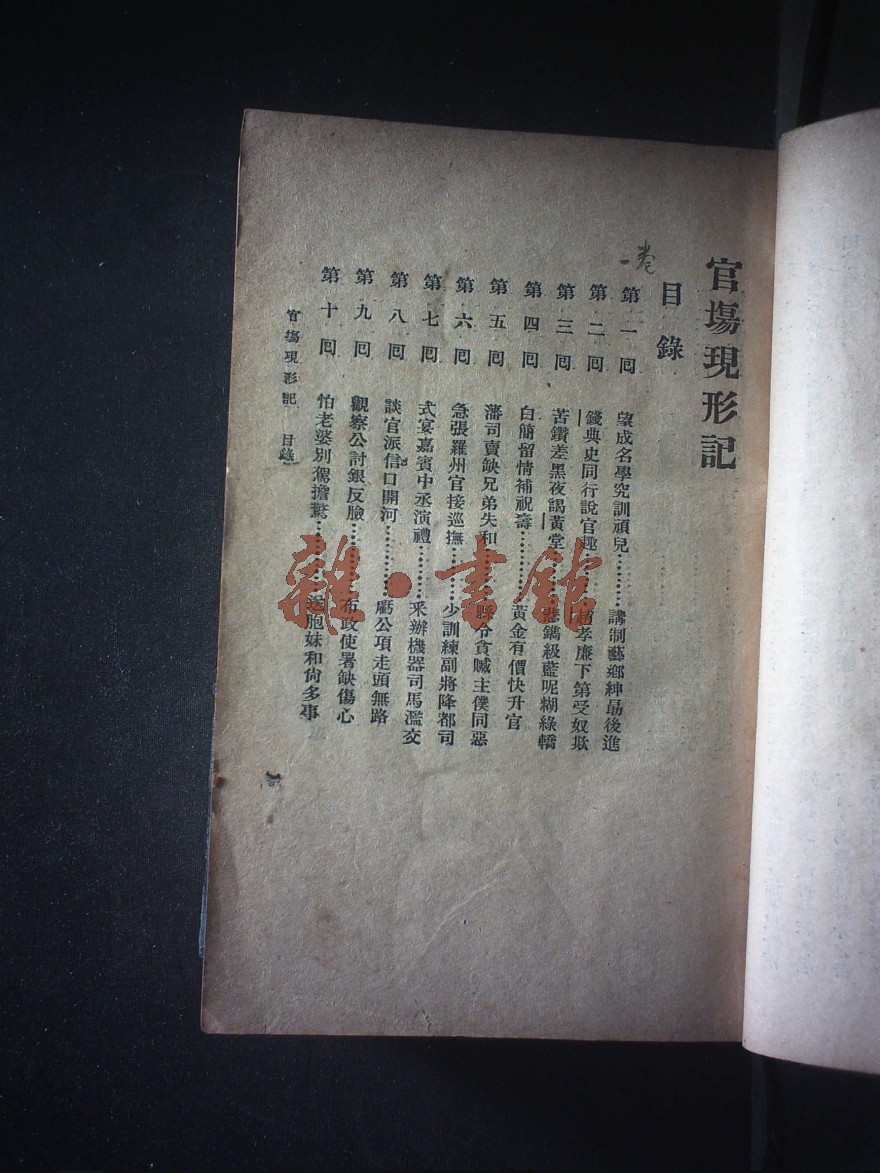 官場現形記
目錄
一卷
第一回 望成名學究訓頑兒 講制藝鄉紳勗後進
第二回 錢典史同行說官趣 趙孝廉下第受奴欺
第三回 苦鑽差黑夜謁黃堂 悲鐫級藍呢糊綠轎
第四回 白簡留情補祝壽 黃金有價快升官
第五回 藩司賣缺兄弟失和 縣令貪贓主僕同惡
第六回 急張羅州官接巡撫 少訓練副將降都司
第七回 式宴嘉賓中丞演禮 采辦機器司馬濫交
第八回 談官派信口開河 虧公項走頭無路
第九回 觀察公討銀反臉 布政使署缺傷心
第十回 怕老婆別駕擔驚 送胞妹和尙多事
官場現形記 目錄
雜·書館